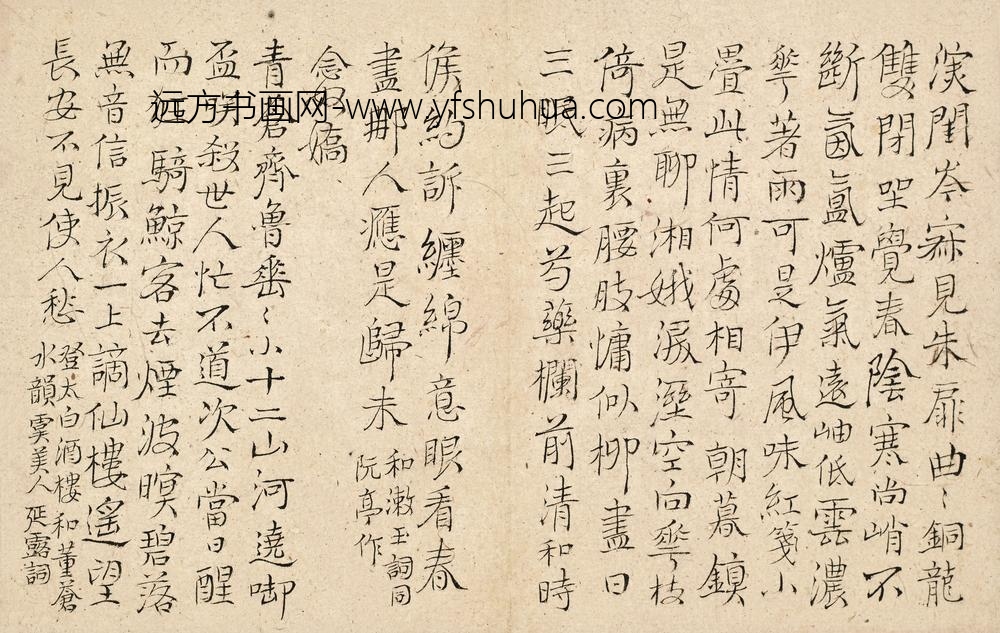 深閨岑寂見朱扉曲〻銅龍
雙閉坐覺春陰寒尚峭不
斷氤氳爐氣遠岫低雲濃
華著雨可是伊風味紅箋小
疊此情何處相寄 朝暮鎮
是無聊湘娥淚溼空向華枝
倚病裏腰肢慵似柳盡日
三眠三起芍藥欄前清和時
候約訴纏綿意眼看春
盡那人應是歸未 和漱玉詞同
阮亭作
念奴嬌
青蒼齊魯乘〻小十二山河遶啣
盃 殺世人忙不道次公當日醒
而狂 騎鯨客去煙波暝碧落
無音信振衣一上謫仙樓遙望
長安不見使人愁 登太白酒樓和董蒼
水韻虞美人 延露詞
远方书画网-www.yfshuhua.com